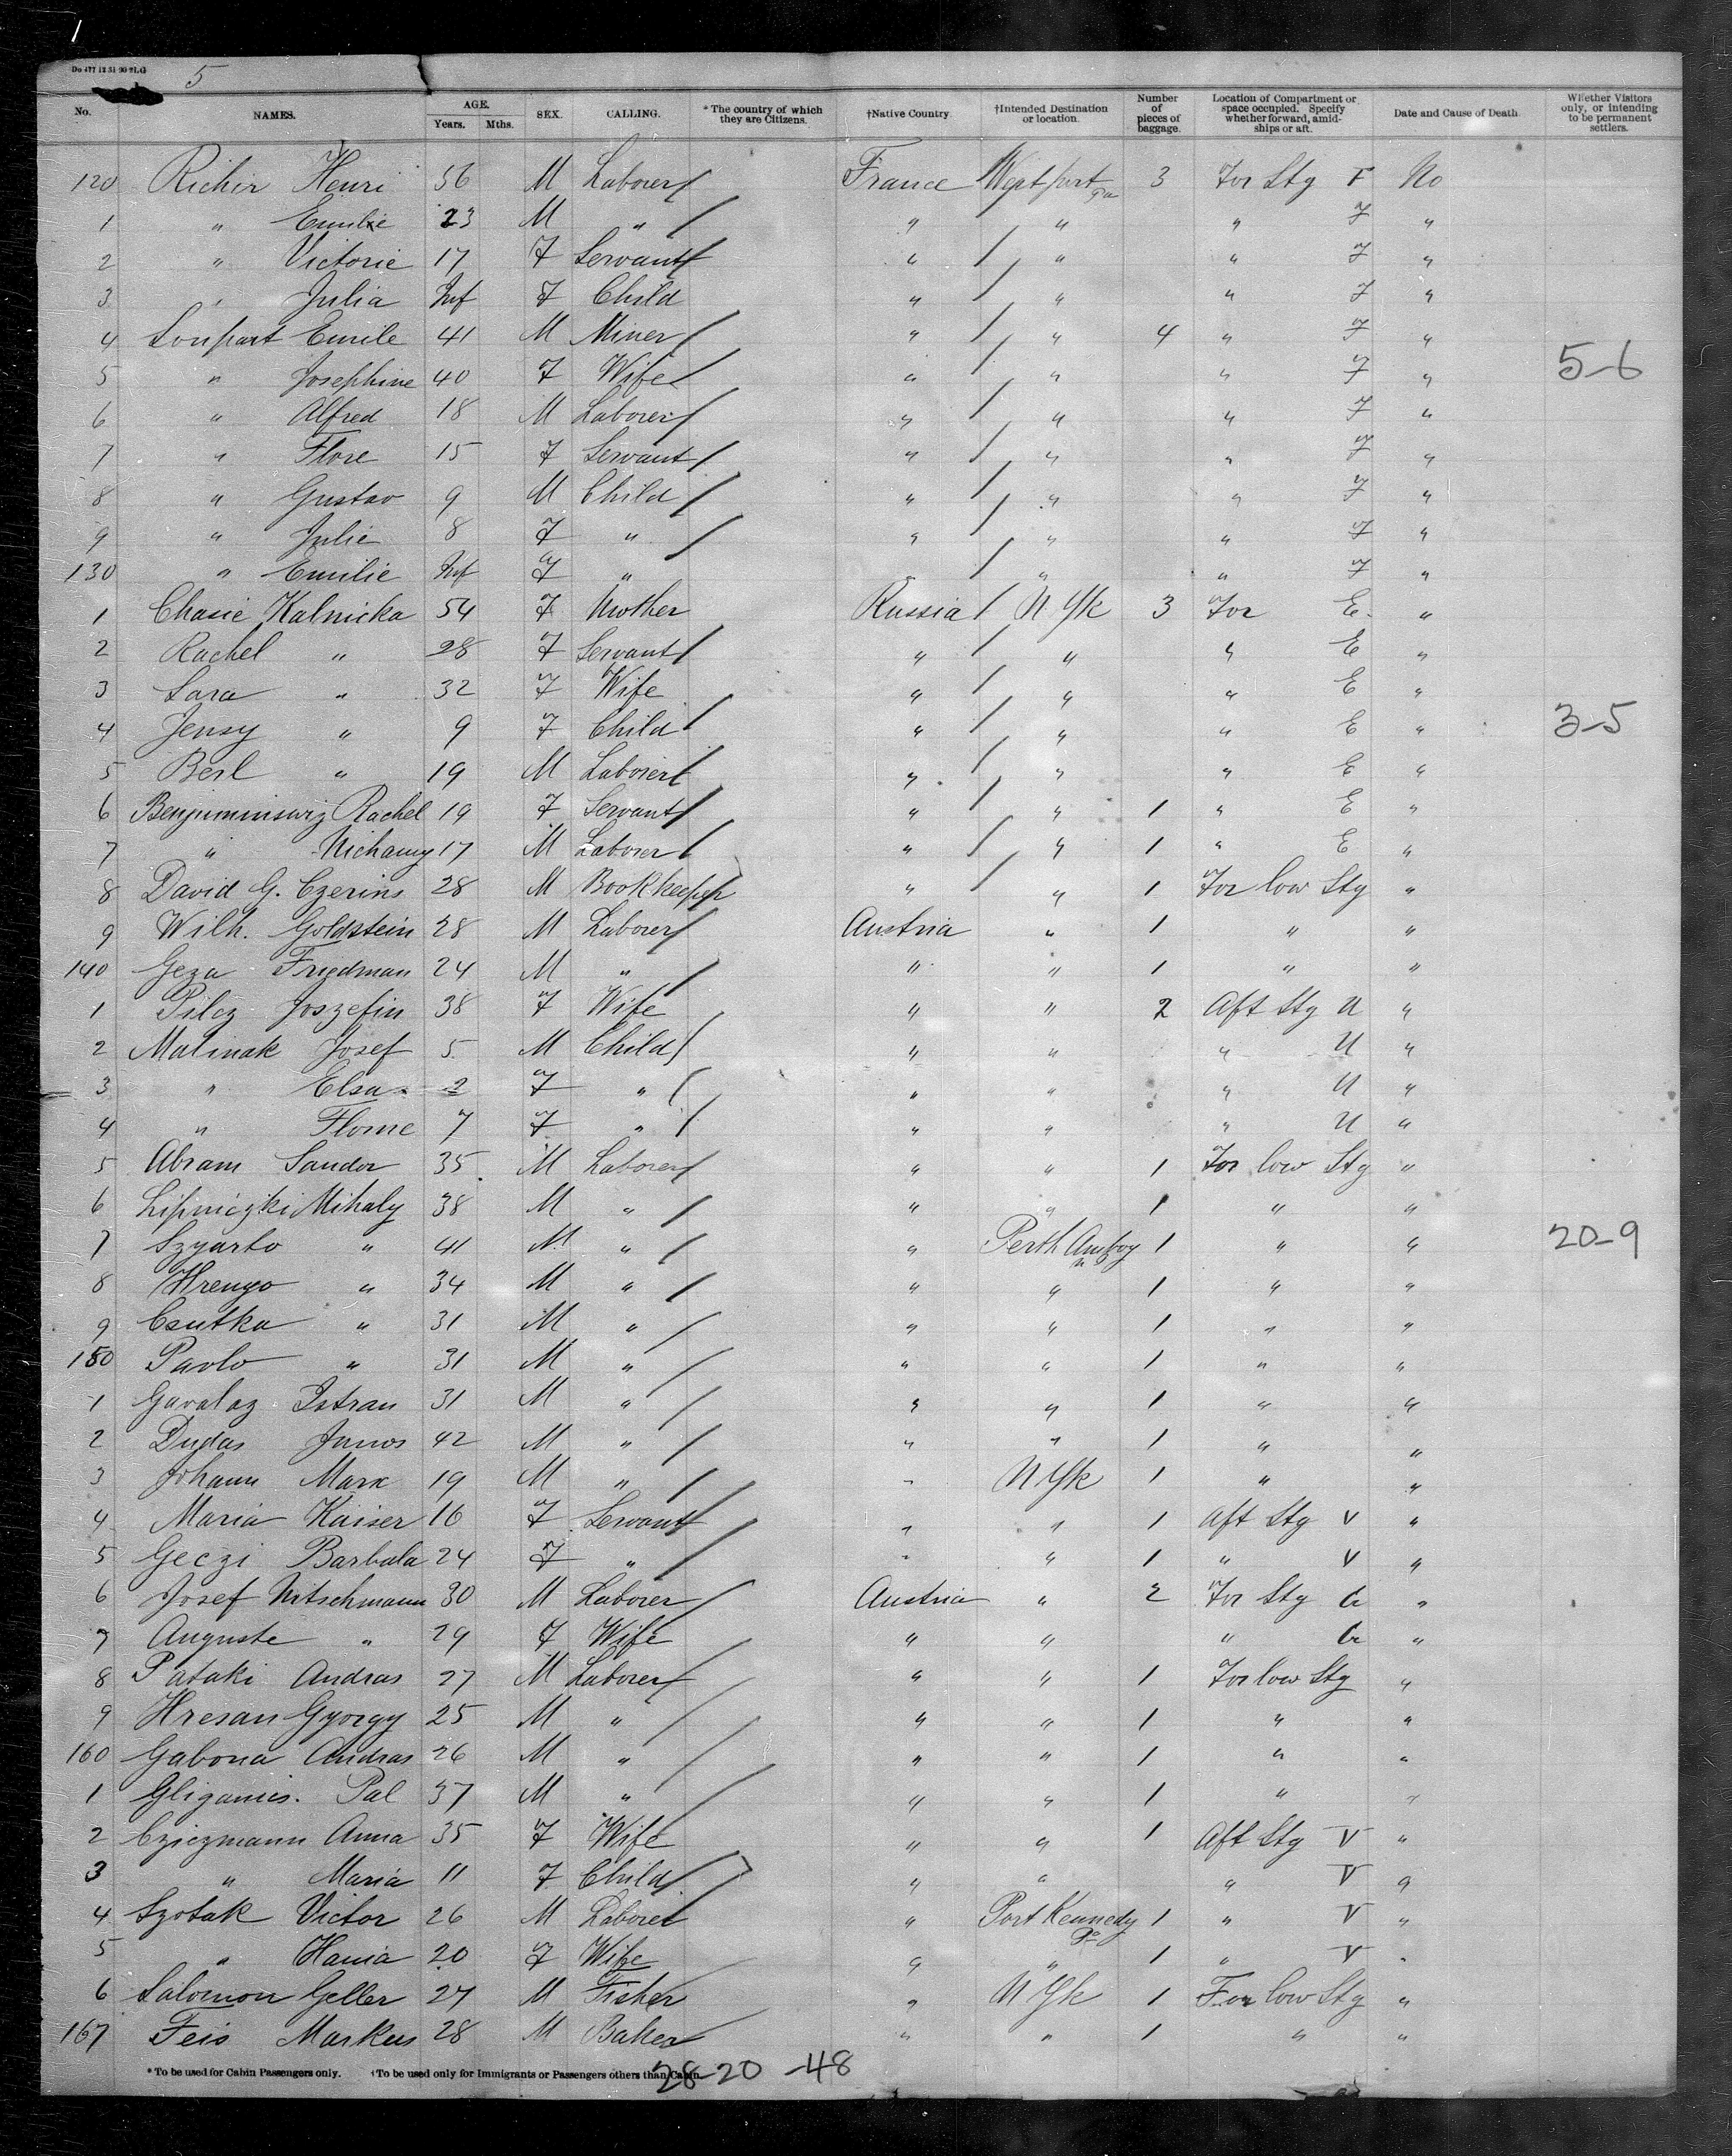 1
Do 477 12 31 90 91. G
5
No. NAMES. AGE. Years. Mths. SEX. CALLING. * The country of which they are Citizens. †Native Country †Intended Destination or location. Number of pieces of baggage. Location of Compartment or space occupied. Specify whether forward, amidships or aft. Date and Cause of Death. Whether Visitors only, or intending to be permanent settlers.
120 Richir Henri 56 M Laborer France Westport Pa 3 For Stg F No
1 " Emilie 23 M " " " " F "
2 " Victorie 17 F Servant " " " F "
3 " Julia Inf F Child " " " F "
4 Soupart Emile 41 M Miner " " 4 " F "
5 " Josephine 40 F Wife " " " F " 5-6
6 " Alfred 18 M Laborer " " " F "
7 " Flore 15 F Servant " " " F "
8 " Gustav 9 M Child " " " F "
9 " Julie 8 F " " " " F "
130 " Emilie Inf F " " " " F "
1 Chasie Kalnicka 54 F Mother Russia N Yk 3 For E "
2 Rachel " 28 F Servant " " " E "
3 Sara " 32 F Wife " " " E "
4 Jensy " 9 F Child " " " E " 3-5
5 Berl " 19 M Laborer " " " E "
6 Benjuminswiz Rachel 19 F Servant " " 1 " E "
7 " Nichamy 17 M Laborer " " 1 " E "
8 David G. Czerins 28 M Bookkeeper " " 1 For low Stg "
9 Wilh. Goldstein 28 M Laborer Austria " 1 " "
140 Geza Friedman 24 M " " " 1 " "
1 Pilcz Joszefin 38 F Wife " " 2 Aft Stg U "
2 Malinak Josef 5 M Child " " " U "
3 " Elsa 2 F " " " " U "
4 " Florne 7 F " " " " U "
5 Abram Sandor 35 M Laborer " " 1 For low Stg "
6 Lipniczki Mihaly 38 M " " " 1 " "
7 Szyarto " 41 M " " Perth Amboy 1 " " 20-9
8 Hrenyo " 34 M " " " 1 " "
9 Csutka " 31 M " " " 1 " "
150 Pavlo " 31 M " " " 1 " "
1 Gavalaz Istran 31 M " " " 1 " "
2 Dudas Janos 42 M " " " 1 " "
3 Johann Marx 19 M " " N Yk 1 " "
4 Maria Kaiser 16 F Servant " " 1 Aft Stg V "
5 Geczi Barbala 24 F " " " 1 " V "
6 Josef Nitschmann 30 M Laborer Austria " 2 For Stg G "
7 Auguste " 29 F Wife " " " G "
8 Pataki Andras 27 M Laborer " " 1 For low Stg "
9 Hresan Gyorgy 25 M " " " 1 " "
160 Gabona Andras 26 M " " " 1 " "
1 Gliganics. Pal 37 M " " " 1 " "
2 Cziczmann Anna 35 F Wife " " 1 Aft Stg V "
3 " Maria 11 F Child " " " V "
4 Szotak Victor 26 M Laborer " Port Kennedy Pa 1 " V "
5 " Hania 20 F Wife " " 1 " V "
6 Salomon Geller 27 M Fisher " N Yk 1 For low Stg "
167 Feis Markus 28 M Baker " " 1 " "
* To be used for Cabin Passengers only. †To be used only for Immigrants or Passengers others than Cabin.
28-20-48